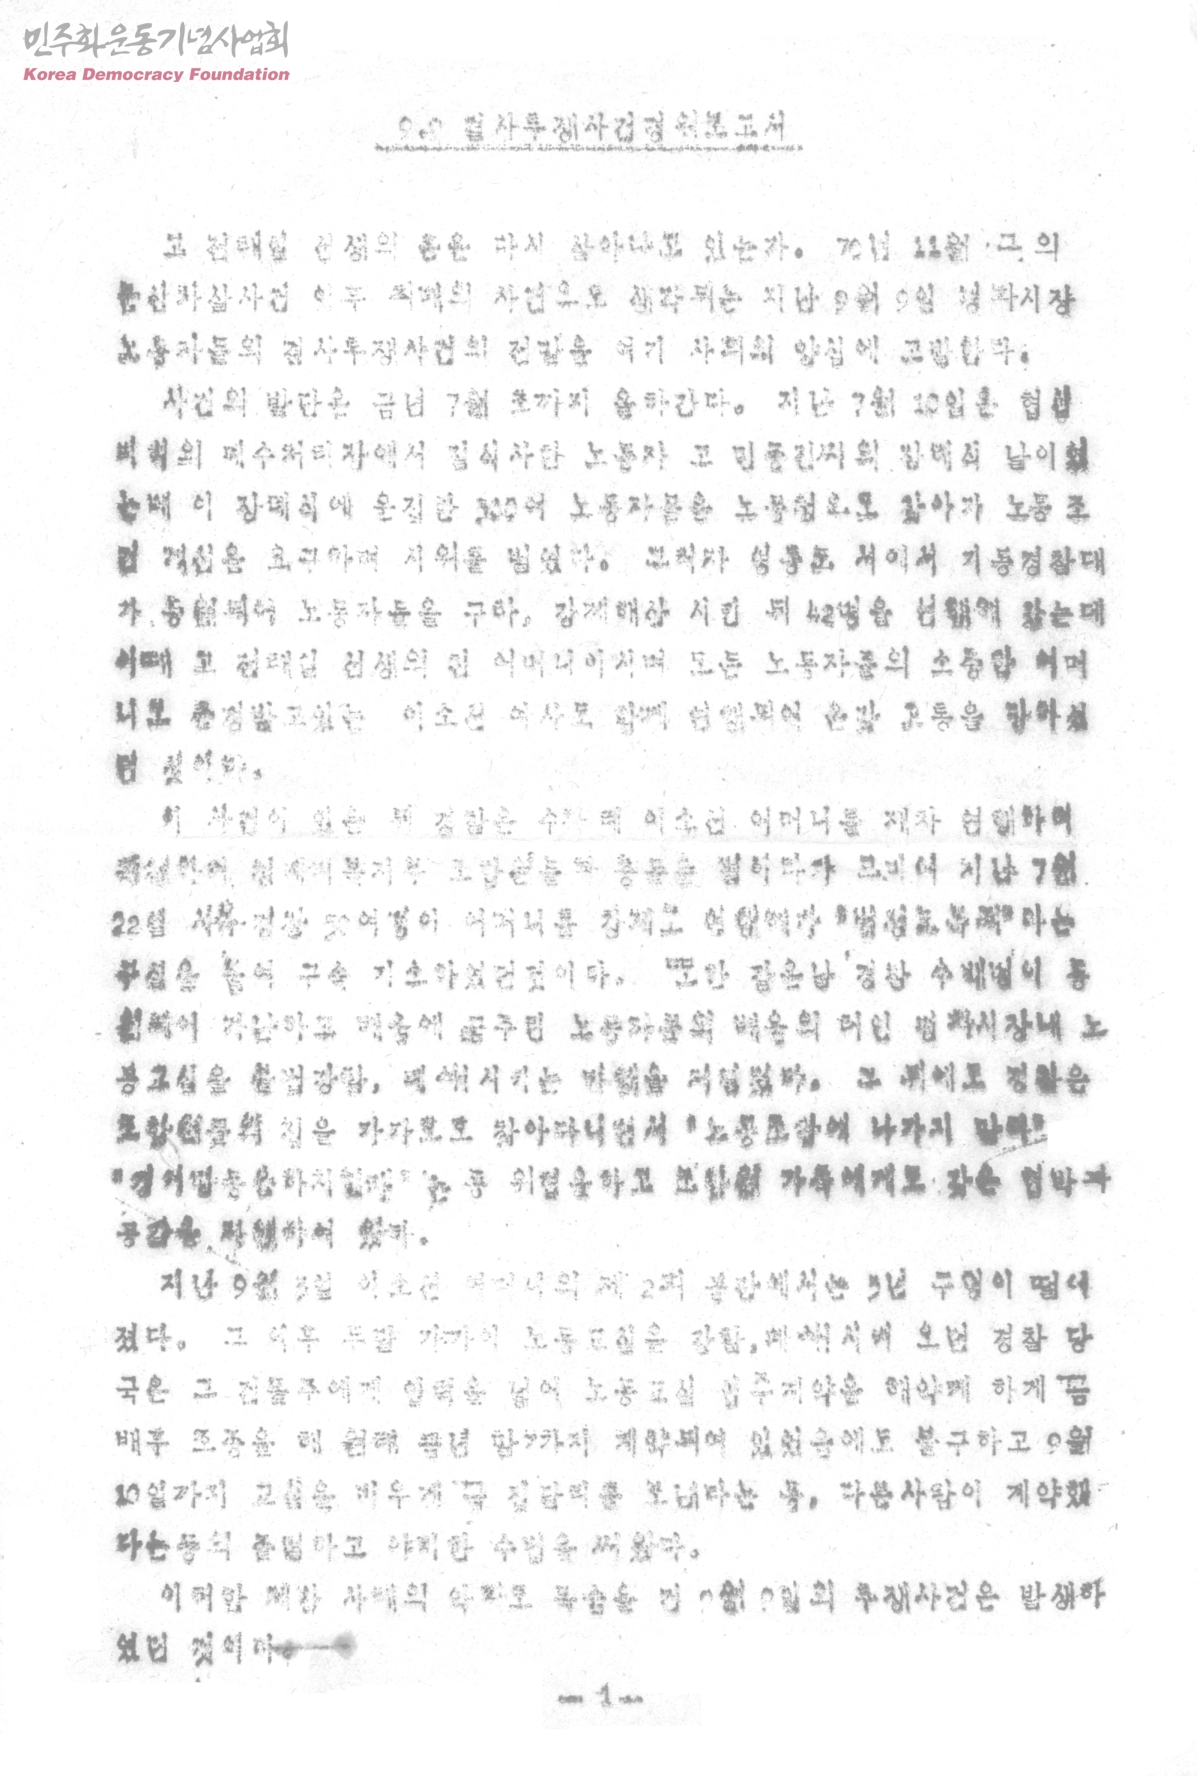 민주화운동기념사업회
Korea Democracy Foundation
9.9 결사투쟁사건경위보고서
고 전태일 선생의 혼은 다시 살아나고 있는가. 70년 11월 그의
분신자살사건 이후 최대의 사건으로 생각되는 지난 9월 9일 평화시장
노동자들의 결사투쟁사건의 전말을 여기 사회의 양심에 고발한다.
사건의 발단은 금년 7월 초까지 올라간다. 지난 7월 10일은 협신
피혁의 폐수처리장에서 질식사한 노동자 고 민종진씨의 장례식 날이었
는데 이 장례식에 운집한 300여 노동자들은 노동청으로 찾아가 노동 조
건 개선을 요구하며 시위를 벌였다. 그러자 영등포 서에서 기동경찰대
가 동원되어 노동자들을 구타, 강제해산 시킨 뒤 42명을 연행해 갔는데
이때 고 전태일 선생의 친 어머니이시며 모든 노동자들의 소중한 어머
니로 존경받고있는 이소선 여사도 함께 연행되어 온갖 고통을 당하셨
던 것이다.
이 사건이 있은 뒤 경찰은 수차례 이소선 어머니를 재차 연행하여
청계피복지부 조합원들과 충돌을 벌이다가 드디어 지난 7월
22일 사복경찰 어머니를 강제로 연행해가 "법정모욕죄"라는
구실을 붙여 구속 기소하였던것이다. 또한 같은날 경찰 수백명이 동
원되어 가난하고 배움에 굶주린 노동자들의 배움의 터인 평화시장내 노
동교실을 불법강점, 폐쇄시키는 만행을 저질렀다. 그 뒤에도 경찰은
조합원들의 집을 가가호호 찾아다니면서 "노동조합에 나가지 말라"
"경거망동을하지말라" 는 등 위협을하고 조합원 가족에게도 갖은 협박과
공갈을 자행하여 왔다.
지난 9월 5일 이소선 어머니의 제 2회 공판에서는 3년 구형이 떨어
졌다. 그 이후 두달 가까이 노동교실을 강점,폐쇄시켜 오던 경찰 당
국은 그 건물주에게 압력을 넣어 노동교실 입주계약을 해약케 하게끔
배후 조종을 해 원래 금년 말까지 계약되어 있었음에도 불구하고 9월
10일까지 교실을 비우게끔 집달리를 보낸다는 등, 다른사람이 계약했
다는등의 졸렬하고 야비한 수법을 써왔다.
이러한 제반 사태의 악화로 목숨을 건 9월 9일의 투쟁사건은 발생하
였던 것이다.
- 1 -